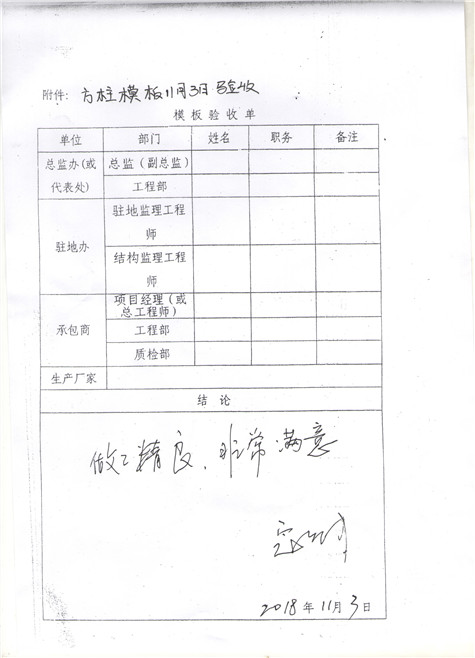 附件: 方柱模板11月3日验收
模板验收单
单位 部门 姓名 职务 备注
总监办(或代表处) 总监(副总监)
工程部
驻地办 驻地监理工程师
结构监理工程师
承包商 项目经理(或总工程师)
工程部
质检部
生产厂家
结 论
做工精良、非常满意
2018年11月3日